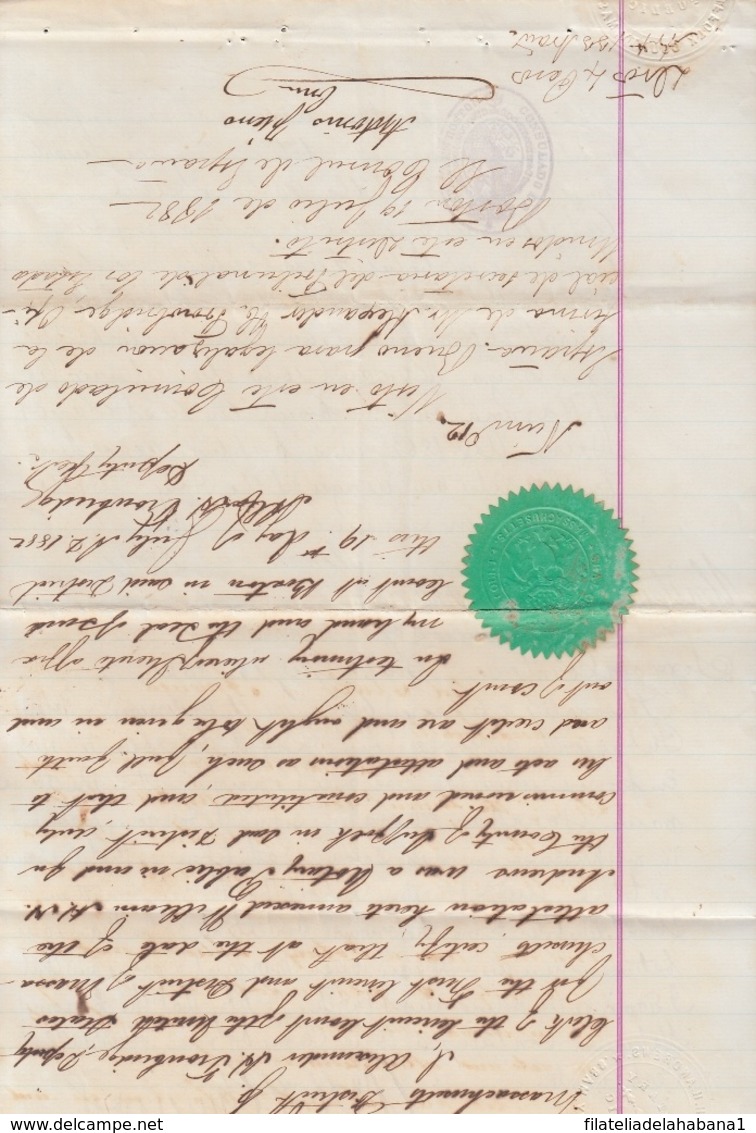 Massachusetts District ss.
I, Alexander H. Trowbridge, Deputy
Clerk of the Circuit Court of the United States
for the First Circuit and District of Massa-
chusetts, certify, that at the date of the
attestation hereto annexed William S. N.
Andrews was a Notary Public in and for
the County of Suffolk in said District, duly
commissioned and constituted, and that to
his acts and attestations as such, full faith
and credit are and ought to be given in and
out of Court.
In testimony whereof I hereunto affix
my hand and the seal of said
Court at Boston in said District
this 19th day of July A.D. 1882
Alex. H. Trowbridge
Deputy Clerk.
Num 912.
Visto en este Consulado de
España. Bueno para legalizacion de la
firma de Mr Alexander H. Trowbridge, Ofi-
cial de secretaria del Tribunal de los Estados
Unidos en este distrito.
Boston 19 Julio de 1882
El Consul de España
Antonio
CONSULADO
filateliadelahabana1